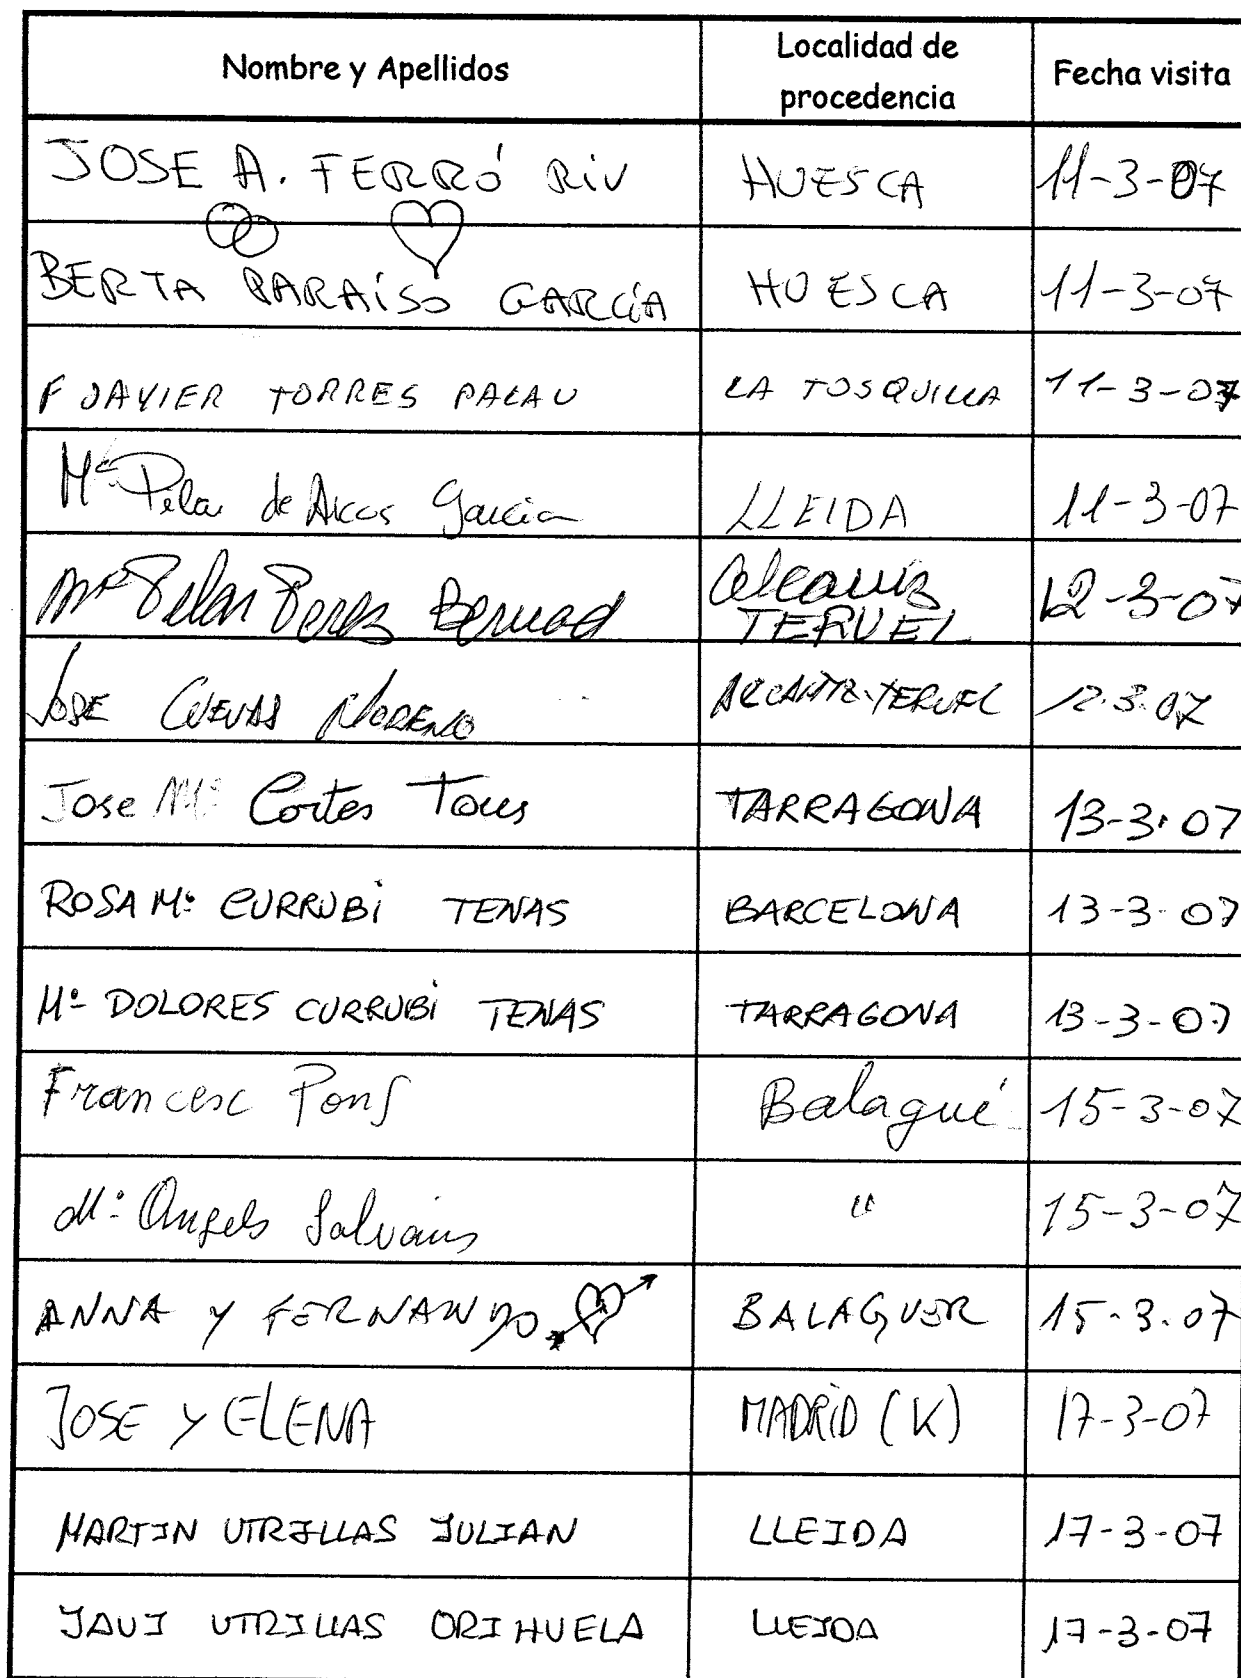 Nombre y Apellidos Localidad de procedencia Fecha visita
JOSE A. FERRÓ RIV HUESCA 11-3-07
BERTA PARAÍSO GARCÍA HUESCA 11-3-07
F JAVIER TORRES PALAU LA TOSQUILLA 11-3-07
Mª Pilar de Arcos Garcia LLEIDA 11-3-07
Mª Pilar Perez Bernad Alcañiz TERUEL 12-3-07
JOSE CUEVAS MORENO ALCAÑIZ-TERUEL 12.3.07
Jose Mª Cortes Tous TARRAGONA 13-3-07
ROSA Mª CURRUBí TENAS BARCELONA 13-3-07
Mª DOLORES CURRUBí TENAS TARRAGONA 13-3-07
Francesc Pons Balagué 15-3-07
Mª Angels Salvans " 15-3-07
ANNA Y FERNANDO BALAGUER 15-3-07
JOSE Y ELENA MADRiD (K) 17-3-07
MARTIN UTRILLAS JULIAN LLEIDA 17-3-07
JAVI UTRILLAS ORIHUELA LLEIDA 17-3-07